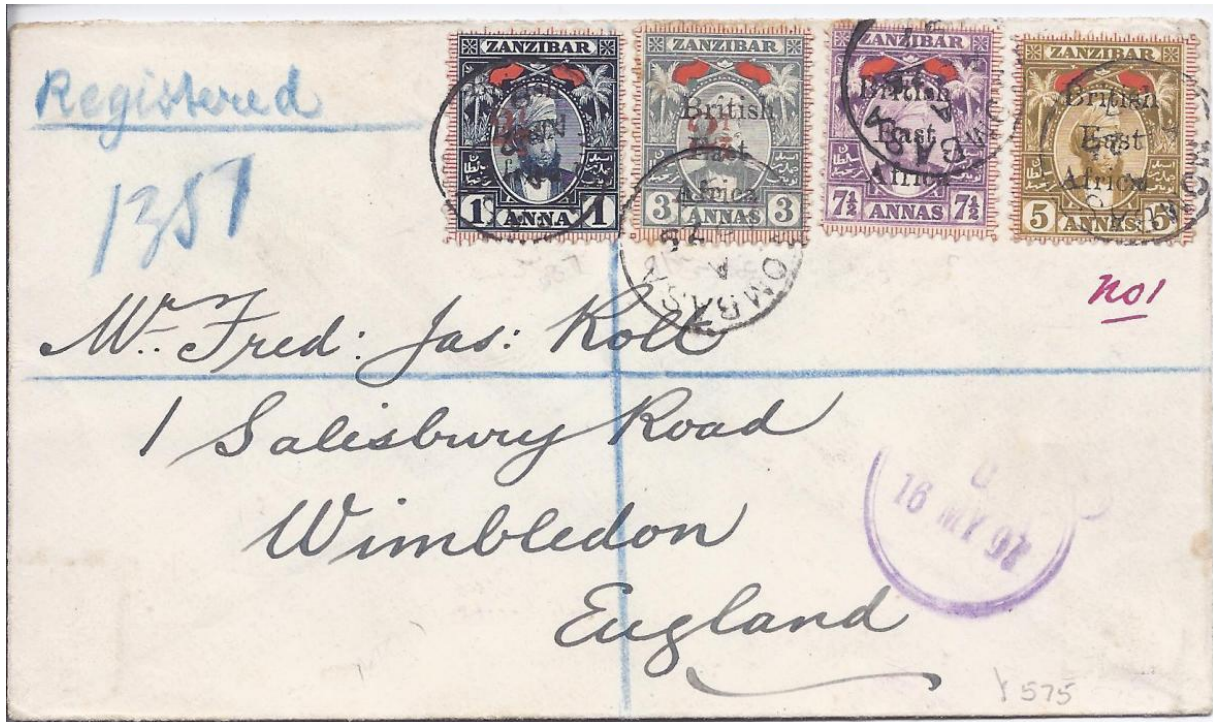 Registered
1351
ZANZIBAR
2½
1 ANNA 1
ZANZIBAR
British
East
Africa
2½
3 ANNAS 3
ZANZIBAR
British
East
Africa
7½ ANNAS 7½
ZANZIBAR
British
East
Africa
5 ANNAS 5
MOMBASA
A
No 1
Mr. Fred: Jas: Kolt
1 Salisbury Road
Wimbledon
England
16 MY 97
575